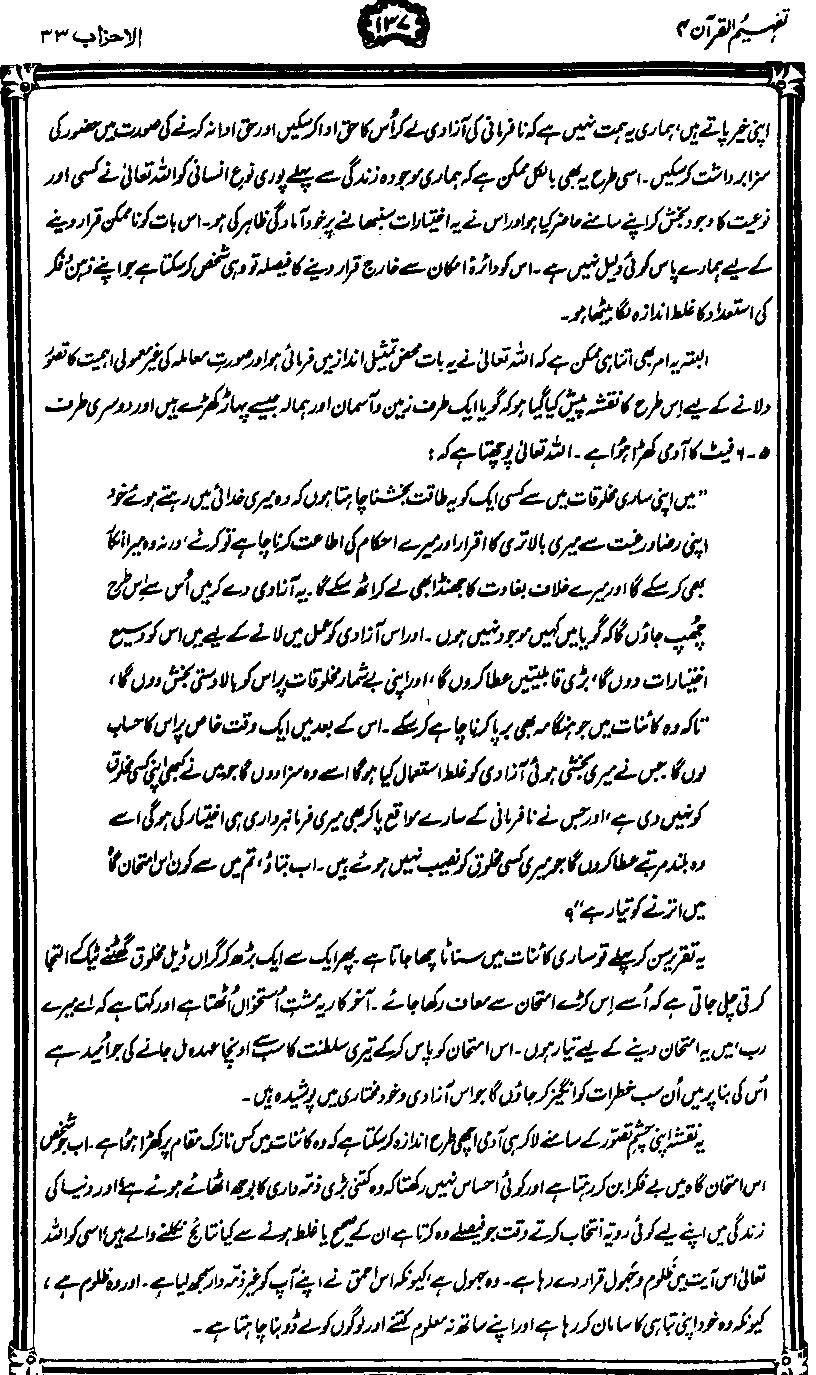 تفہیم القرآن ۴
۱۳۷
الاحزاب ۳۳
اپنی خیر پاتے ہیں، ہماری یہ ہمت نہیں ہے کہ نافرمانی کی آزادی لے کر اُس کا حق ادا کر سکیں اور حق ادا نہ کرنے کی صورت میں حضور کی
سزا برداشت کر سکیں۔ اسی طرح یہ بھی بالکل ممکن ہے کہ ہماری موجودہ زندگی سے پہلے پوری نوع انسانی کو اللہ تعالیٰ نے کسی اور
نوعیت کا وجود بخش کر اپنے سامنے حاضر کیا ہو اور اس نے یہ اختیارات سنبھالنے پر خود آمادگی ظاہر کی ہو۔ اس بات کو ناممکن قرار دینے
کے لیے ہمارے پاس کوئی دلیل نہیں ہے۔ اس کو دائرۂ امکان سے خارج قرار دینے کا فیصلہ تو وہی شخص کر سکتا ہے جو اپنے ذہن و فکر
کی استعداد کا غلط اندازہ لگا بیٹھا ہو۔
البتہ یہ امر بھی اتنا ہی ممکن ہے کہ اللہ تعالیٰ نے یہ بات محض تمثیلی انداز میں فرمائی ہو اور صورت معاملہ کی غیر معمولی اہمیت کا تصوّر
دلانے کے لیے اِس طرح کا نقشہ پیش کیا گیا ہو کہ گویا ایک طرف زمین و آسمان اور ہمالہ جیسے پہاڑ کھڑے ہیں اور دوسری طرف
۵-۶ فیٹ کا آدمی کھڑا ہُوا ہے۔ اللہ تعالیٰ پوچھتا ہے کہ:
”میں اپنی ساری مخلوقات میں سے کسی ایک کو یہ طاقت بخشنا چاہتا ہوں کہ وہ میری خدائی میں رہتے ہوئے خود
اپنی رضا و رغبت سے میری بالاتری کا اقرار اور میرے احکام کی اطاعت کرنا چاہے تو کرے، ورنہ وہ میرا انکار
بھی کر سکے گا اور میرے خلاف بغاوت کا جھنڈا بھی لے کر اٹھ سکے گا۔ یہ آزادی دے کر میں اُس سے اِس طرح
چھُپ جاؤں گا کہ گویا میں کہیں موجود نہیں ہوں۔ اور اس آزادی کو عمل میں لانے کے لیے میں اس کو وسیع
اختیارات دوں گا، بڑی قابلیتیں عطا کروں گا، اور اپنی بے شمار مخلوقات پر اس کو بالادستی بخش دوں گا،
تاکہ وہ کائنات میں جو ہنگامہ بھی برپا کرنا چاہے کر سکے۔ اس کے بعد میں ایک وقت خاص پر اس کا حساب
لوں گا۔ جس نے میری بخشی ہوئی آزادی کو غلط استعمال کیا ہوگا اسے وہ سزا دوں گا جو میں نے کبھی اپنی کسی مخلوق
کو نہیں دی ہے، اور جس نے نافرمانی کے سارے مواقع پا کر بھی میری فرمانبرداری ہی اختیار کی ہوگی اسے
وہ بلند مرتبے عطا کروں گا جو میری کسی مخلوق کو نصیب نہیں ہوئے ہیں۔ اب بتاؤ، تم میں سے کون اس امتحان گاہ
میں اترنے کو تیار ہے“؟
یہ تقریر سن کر پہلے تو ساری کائنات میں سناٹا چھا جاتا ہے۔ پھر ایک سے ایک بڑھ کر گراں ڈیل مخلوق گھٹنے ٹیک کر التجا
کرتی چلی جاتی ہے کہ اُسے اِس کڑے امتحان سے معاف رکھا جائے۔ آخر کار یہ مشتِ اُستخواں اُٹھتا ہے اور کہتا ہے کہ اے میرے
رب، میں یہ امتحان دینے کے لیے تیار ہوں۔ اس امتحان کو پاس کر کے تیری سلطنت کا سب سے اونچا عہدہ مل جانے کی جو اُمید ہے
اُس کی بنا پر میں اُن سب خطرات کو انگیز کر جاؤں گا جو اس آزادی و خود مختاری میں پوشیدہ ہیں۔
یہ نقشہ اپنی چشمِ تصوّر کے سامنے لا کر ہی آدمی اچھی طرح اندازہ کر سکتا ہے کہ وہ کائنات میں کس نازک مقام پر کھڑا ہُوا ہے۔ اب جو شخص
اس امتحان گاہ میں بے فکرا بن کر رہتا ہے اور کوئی احساس نہیں رکھتا کہ وہ کتنی بڑی ذمّہ داری کا بوجھ اٹھائے ہوئے ہے، اور دنیا کی
زندگی میں اپنے لیے کوئی رویّہ انتخاب کرتے وقت جو فیصلے وہ کرتا ہے ان کے صحیح یا غلط ہونے سے کیا نتائج نکلنے والے ہیں، اسی کو اللہ
تعالیٰ اس آیت میں ظَلوم و جَہول قرار دے رہا ہے۔ وہ جہول ہے، کیونکہ اس احمق نے اپنے آپ کو غیر ذمّہ دار سمجھ لیا ہے۔ اور وہ ظلوم ہے،
کیونکہ وہ خود اپنی تباہی کا سامان کر رہا ہے اور اپنے ساتھ نہ معلوم کتنے اور لوگوں کو لے ڈوبنا چاہتا ہے۔